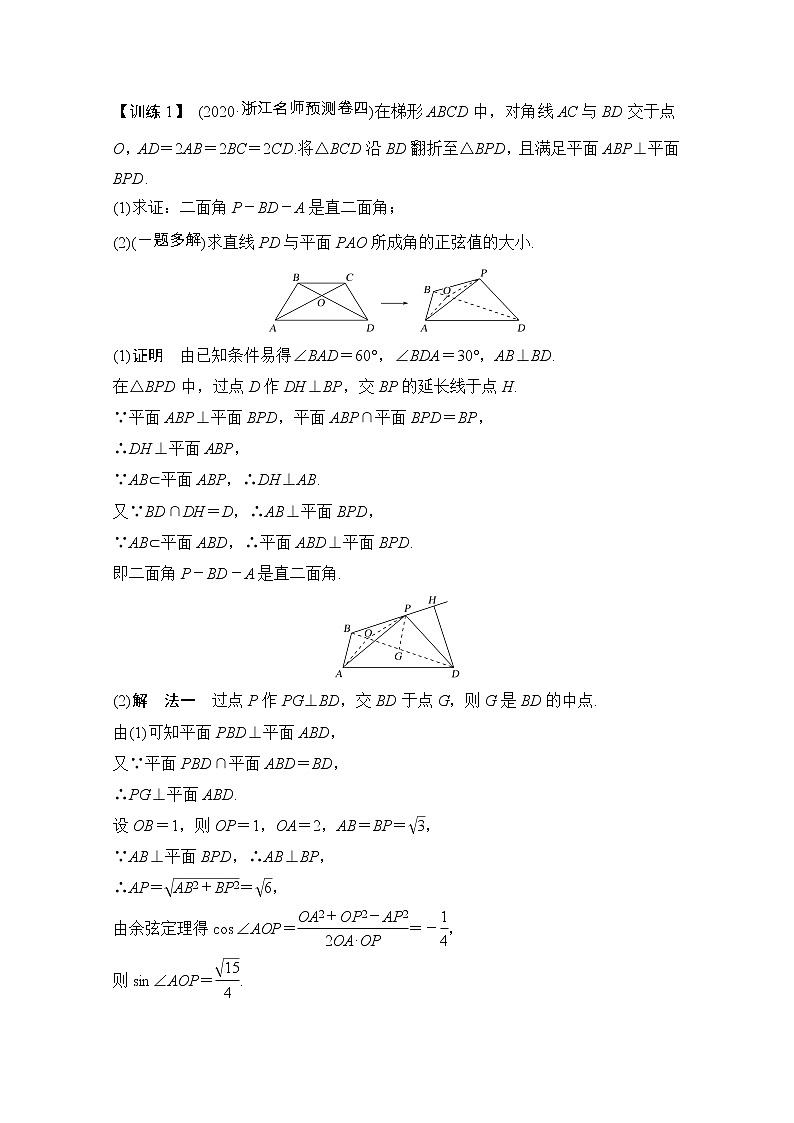 【训练1】 (2020·浙江名师预测卷四)在梯形ABCD中，对角线AC与BD交于点
O，AD＝2AB＝2BC＝2CD.将△BCD沿BD翻折至△BPD，且满足平面ABP⊥平面
BPD.
(1)求证：二面角P－BD－A是直二面角；
(2)(一题多解)求直线PD与平面PAO所成角的正弦值的大小.
B C O A D
P B O A D
(1)证明 由已知条件易得∠BAD＝60°，∠BDA＝30°，AB⊥BD.
在△BPD中，过点D作DH⊥BP，交BP的延长线于点H.
∵平面ABP⊥平面BPD，平面ABP∩平面BPD＝BP，
∴DH⊥平面ABP，
∵AB⊂平面ABP，∴DH⊥AB.
又∵BD∩DH＝D，∴AB⊥平面BPD，
∵AB⊂平面ABD，∴平面ABD⊥平面BPD.
即二面角P－BD－A是直二面角.
P H B O G A D
(2)解 法一 过点P作PG⊥BD，交BD于点G，则G是BD的中点.
由(1)可知平面PBD⊥平面ABD，
又∵平面PBD∩平面ABD＝BD，
∴PG⊥平面ABD.
设OB＝1，则OP＝1，OA＝2，AB＝BP＝√3，
∵AB⊥平面BPD，∴AB⊥BP，
∴AP＝√(AB²＋BP²)＝√6，
由余弦定理得cos∠AOP＝(OA²＋OP²－AP²)/(2OA·OP)＝－1/4，
则sin∠AOP＝√15/4.